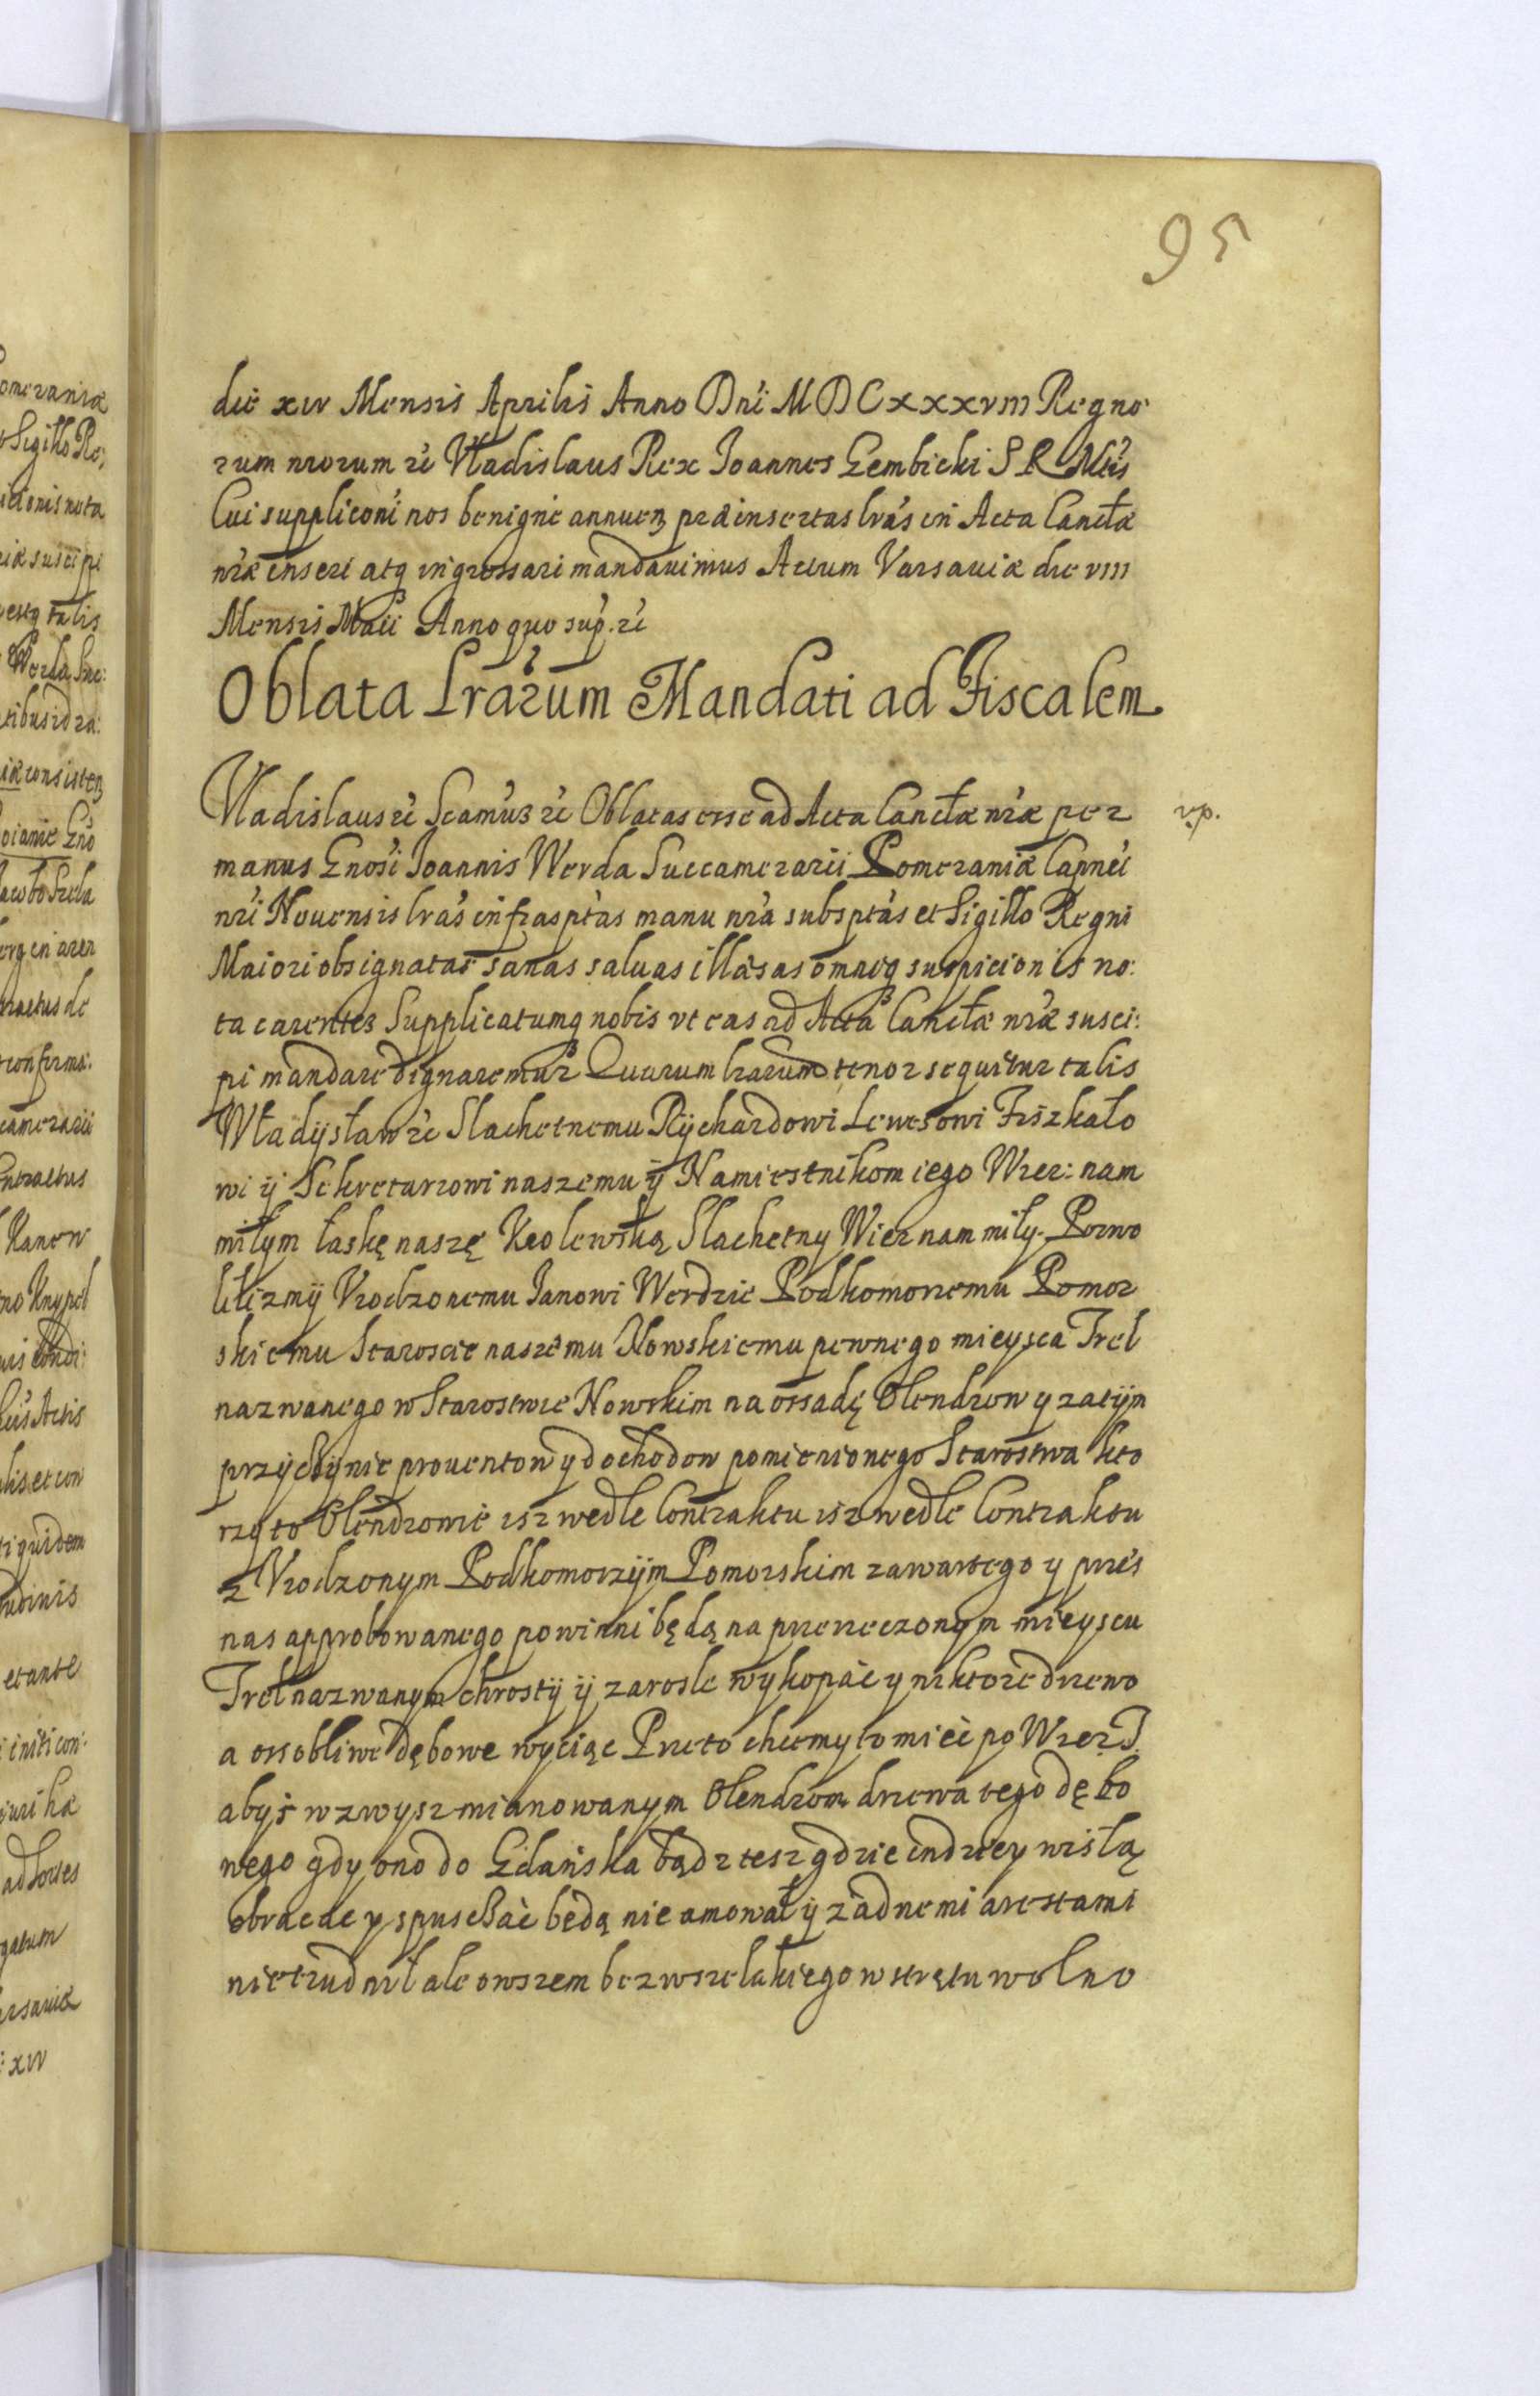 95
die xiv Mensis Aprilis Anno Dni MDCxxxviii Regno
rum nrorum rc Vladislaus Rex Ioannes Gembicki S R Mtis
Cui suppliconi nos benigne annuen praeinsertas lras in Acta Cancellae
nrae inseri atq ingrossari mandavimus Actum Varsaviae die viii
Mensis Maii Anno quo sup. rc
Oblata Lrarum Mandati ad Fiscalem
Vladislaus rc Scamus rc Oblatas esse ad Acta Cancellae nrae per
manus Gnosi Ioannis Werda Succamerarii Pomeraniae Capnei
nri Novensis lras infrasptas manu nra subsptas et Sigillo Regni
Maiori obsignatas sanas salvas illaesas omniq suspicionis no:
ta carentes Supplicatumq nobis ut eas ad Acta Cancellae nrae susci:
pi mandare dignaremur Quarum lrarum tenor sequitur talis
Władysław rc Slachetnemu Rychardowi Lewesowi Fiszkało
wi ÿ Sekretarzowi naszemu ÿ Namiestnikom iego Wier: nam
miłym łaskę naszę Krolewską Slachetny Wier nam miły. Pozwo
liliżmÿ Vrodzonemu Janowi Werdzie Podkomorzemu Pomor
skiemu Staroscie naszemu Nowskiemu pewnego mieysca Trel
nazwanego w Starostwie Nowskim na ossadę Olendrow y zatÿm
przÿczÿnie proventow y dochodow pomienionego Starostwa kto
rzy to Olendrowie isz wedle Contraktu isz wedle Contraktu
z Vrodzonym Podkomorzÿm Pomorskim zawartego y przes
nas approbowanego powinni będą na przerzeczonym mieyscu
Trel nazwanym chrostÿ ÿ zarosle wykopać y niktore drzewo
a ossobliwe dębowe wyciąc Przeto chcemy to mieć po Wier. T.
abyś wzwysz mianowanym Olendrom drzewa tego dębo
wego gdy ono do Gdańska bądz tesz gdzie indziey wisłą
obracac y spuszczać będą nie amowałÿ żadnemi arestami
nie trudnił ale owszem bez wszelakiego wstrętu wolno